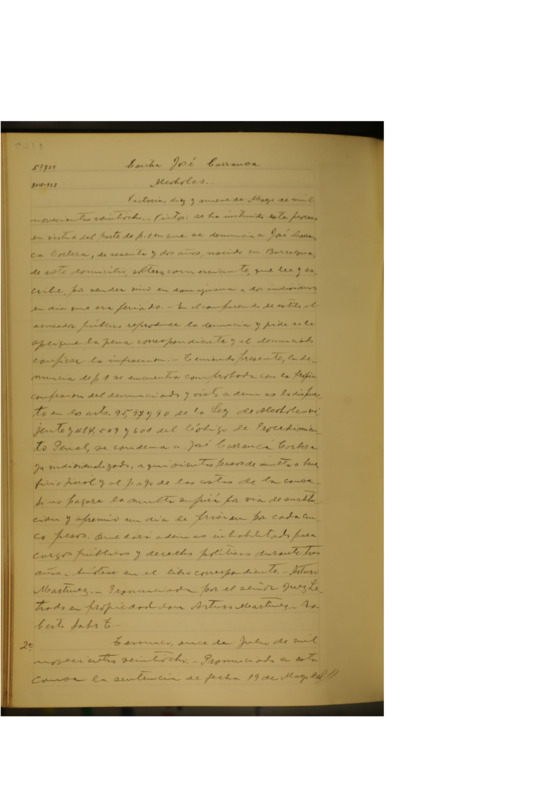 Contra José Carranca
Alcoholes.
Victoria diez y nueve de Mayo de mil
novecientos veintiocho. Vistos: se ha instruido este proceso
en virtud del parte de p. 1 en que se denuncia a José Carran
ca Cortesa, de sesenta y dos años, nacido en
de este domicilio, comerciante, que lee y es
cribe, por vender vino en a dos individuos
en día que era feriado. - En el comparendo de estilo el
acusador público reproduce la denuncia y pide se le
aplique la pena correspondiente y el denunciado
confiesa la infracción. - Teniendo presente, la de
nuncia de p. 1 se encuentra comprobada con la
confesión del denunciado y visto además lo dispues
to en los arts. 95, 97 y 90 de la Ley de Alcoholes vi
jente y 484, 503 y 504 del Código de Procedimien
to Penal, se condena a José Carranca Cortesa
ya individualizado, a quinientos pesos de multa a bene
ficio fiscal y al pago de las costas de la causa.
Si no pagare la multa sufrirá por vía de sustitu
ción y apremio un día de prisión por cada cin
co pesos. Queda además inhabilitado para
cargos públicos y derechos políticos durante tres
años. Anótese en el libro correspondiente. - Arturo
Martínez. - Pronunciada por el señor Juez Le
trado en propiedad don Arturo Martínez. - Ro
berto
Temuco, once de Julio de mil
novecientos veintiocho. - Pronunciada en esta
causa la sentencia de fecha 19 de Mayo del //